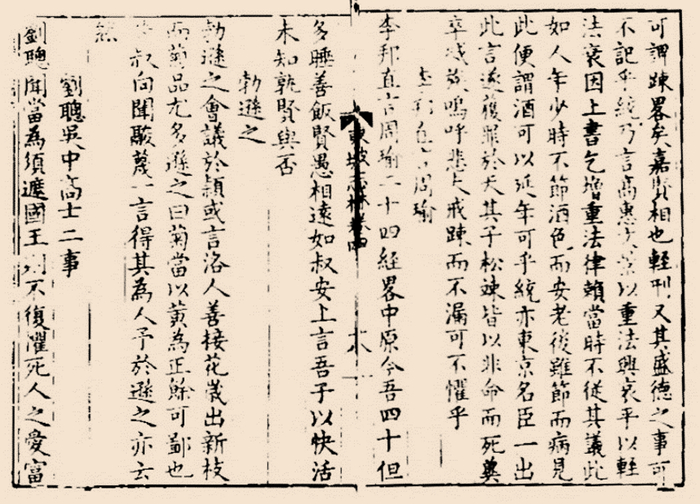 可謂踈畧矣嘉賢相也輕刑又其盛德之事可
不記乎統乃言高惠文景以重法興哀平以輕
法衰因上書乞增重法律賴當時不從其議此
如人年少時不節酒色而安老後雖節而病見
此便謂酒可以延年可乎統亦東京名臣一出
此言遂獲罪於天其子松竦皆以非命而死冀
卒滅族嗚呼悲夫戒踈而不漏可不懼乎
李邦直言周瑜
李邦直言周瑜二十四經畧中原今吾四十但
東坡志林卷四
六
多睡善飯賢愚相遠如叔安上言吾子以快活
未知孰賢與否
勃遜之
勃遜之會議於潁或言洛人善接花歲出新枝
而菊品尤多遜之曰菊當以黃為正餘可鄙也
叔向聞鬷蔑一言得其為人予於遜之亦云
然
劉聰吳中高士二事
劉聰聞當為須遮國王則不復懼死人之愛富